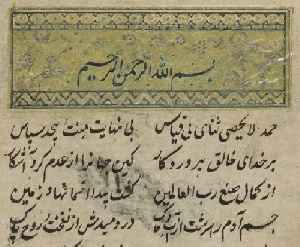 بسم الله الرحمن الرحیم
حمد لا یحصی ثنای بی قیاس بی نهایت منت بیحد سپاس
بر خدای خالق پروردگار کین جهانرا از عدم کرد آشکار
از کمال صنع رب العالمین گشت پیدا آسمانها و زمین
جسم آدم را سرشت از آب و خاک در دمیدش از نفخت روح پاک